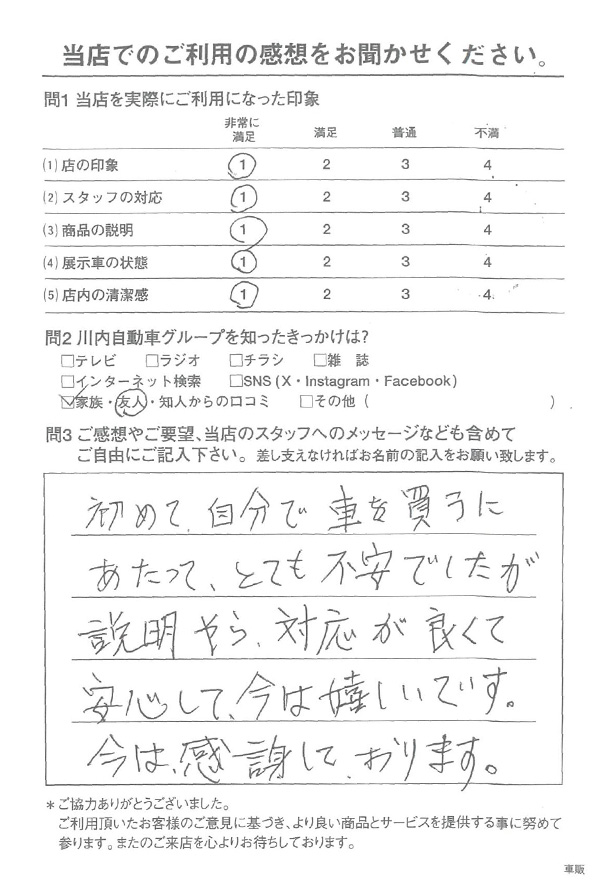 当店でのご利用の感想をお聞かせください。
問1 当店を実際にご利用になった印象
非常に満足 満足 普通 不満
(1) 店の印象 1 2 3 4
(2) スタッフの対応 1 2 3 4
(3) 商品の説明 1 2 3 4
(4) 展示車の状態 1 2 3 4
(5) 店内の清潔感 1 2 3 4
問2 川内自動車グループを知ったきっかけは?
□テレビ □ラジオ □チラシ □雑 誌
□インターネット検索 □SNS (X・Instagram・Facebook)
☑家族・友人・知人からの口コミ □その他 ( )
問3 ご感想やご要望、当店のスタッフへのメッセージなども含めて
ご自由にご記入下さい。差し支えなければお名前の記入をお願い致します。
初めて、自分で車を買うに
あたって、とても不安でしたが
説明やら、対応が良くて
安心して、今は嬉しいです。
今は、感謝して、おります。
*ご協力ありがとうございました。
ご利用頂いたお客様のご意見に基づき、より良い商品とサービスを提供する事に努めて
参ります。またのご来店を心よりお待ちしております。
車販